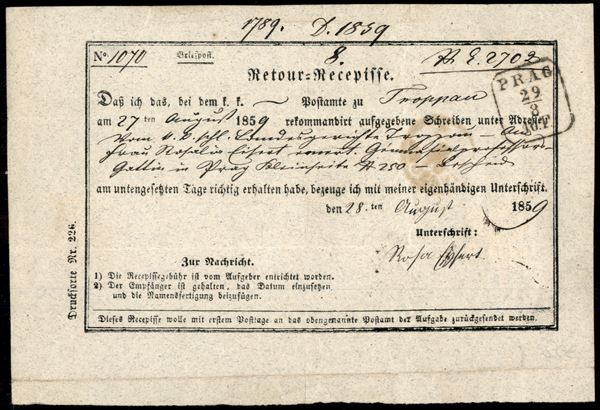 1789. D. 1859
No. 1070 Briefpost. 8. E. 2702
Retour-Recepisse.
PRAG
29
8
Daß ich das, bei dem k. k. Postamte zu Troppau
am 27ten August 1859 rekommandirt aufgegebene Schreiben unter Adresse
Vom k. k. schl. Landesgerichte Troppau – An
Frau Rosalia Eisert emert. Gymnasialprofessors
Gattin in Prag Kleinseite # 250 – Bescheid
am untengesetzten Tage richtig erhalten habe, bezeuge ich mit meiner eigenhändigen Unterschrift.
den 28.ten August 1859
Unterschrift:
Rosa Eysert
Zur Nachricht.
1) Die Recepissegebühr ist vom Aufgeber entrichtet worden.
2) Der Empfänger ist gehalten, das Datum einzusetzen
und die Namensfertigung beizufügen.
Dieses Recepisse wolle mit erstem Posttage an das obengenannte Postamt der Aufgabe zurückgesendet werden.
Drucksorte Nr. 226.